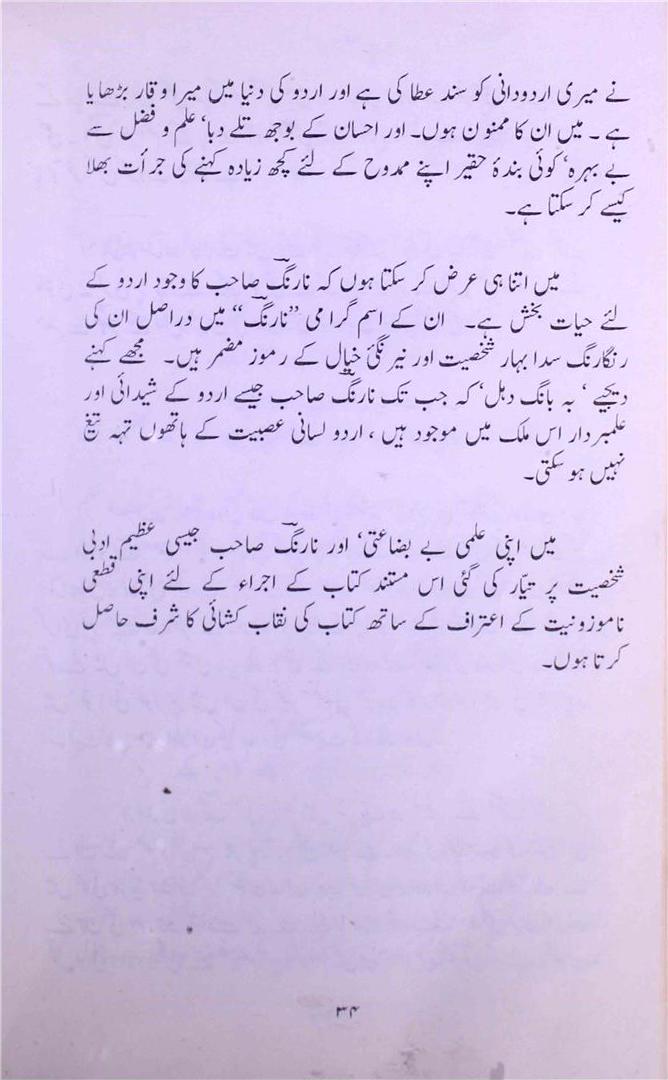 نے میری اردودانی کو سند عطا کی ہے اور اردو کی دنیا میں میرا وقار بڑھایا
ہے ۔ میں ان کا ممنون ہوں۔ اور احسان کے بوجھ تلے دبا‘ علم و فضل سے
بے بہرہ‘ کوئی بندۂ حقیر اپنے ممدوح کے لئے کچھ زیادہ کہنے کی جرأت بھلا
کیسے کر سکتا ہے۔
میں اتنا ہی عرض کر سکتا ہوں کہ نارنگؔ صاحب کا وجود اردو کے
لئے حیات بخش ہے۔ ان کے اسم گرامی ”نارنگؔ“ میں دراصل ان کی
رنگارنگ سدا بہار شخصیت اور نیرنگئ خیال کے رموز مضمر ہیں۔ مجھے کہنے
دیجیے ‘ بہ بانگ دہل‘ کہ جب تک نارنگؔ صاحب جیسے اردو کے شیدائی اور
علمبردار اس ملک میں موجود ہیں ، اردو لسانی عصبیت کے ہاتھوں تہہ تیغ
نہیں ہو سکتی۔
میں اپنی علمی بے بضاعتی‘ اور نارنگؔ صاحب جیسی عظیم ادبی
شخصیت پر تیّار کی گئی اس مستند کتاب کے اجراء کے لئے اپنی قطعی
ناموزونیت کے اعتراف کے ساتھ کتاب کی نقاب کشائی کا شرف حاصل
کرتا ہوں۔
۳۴